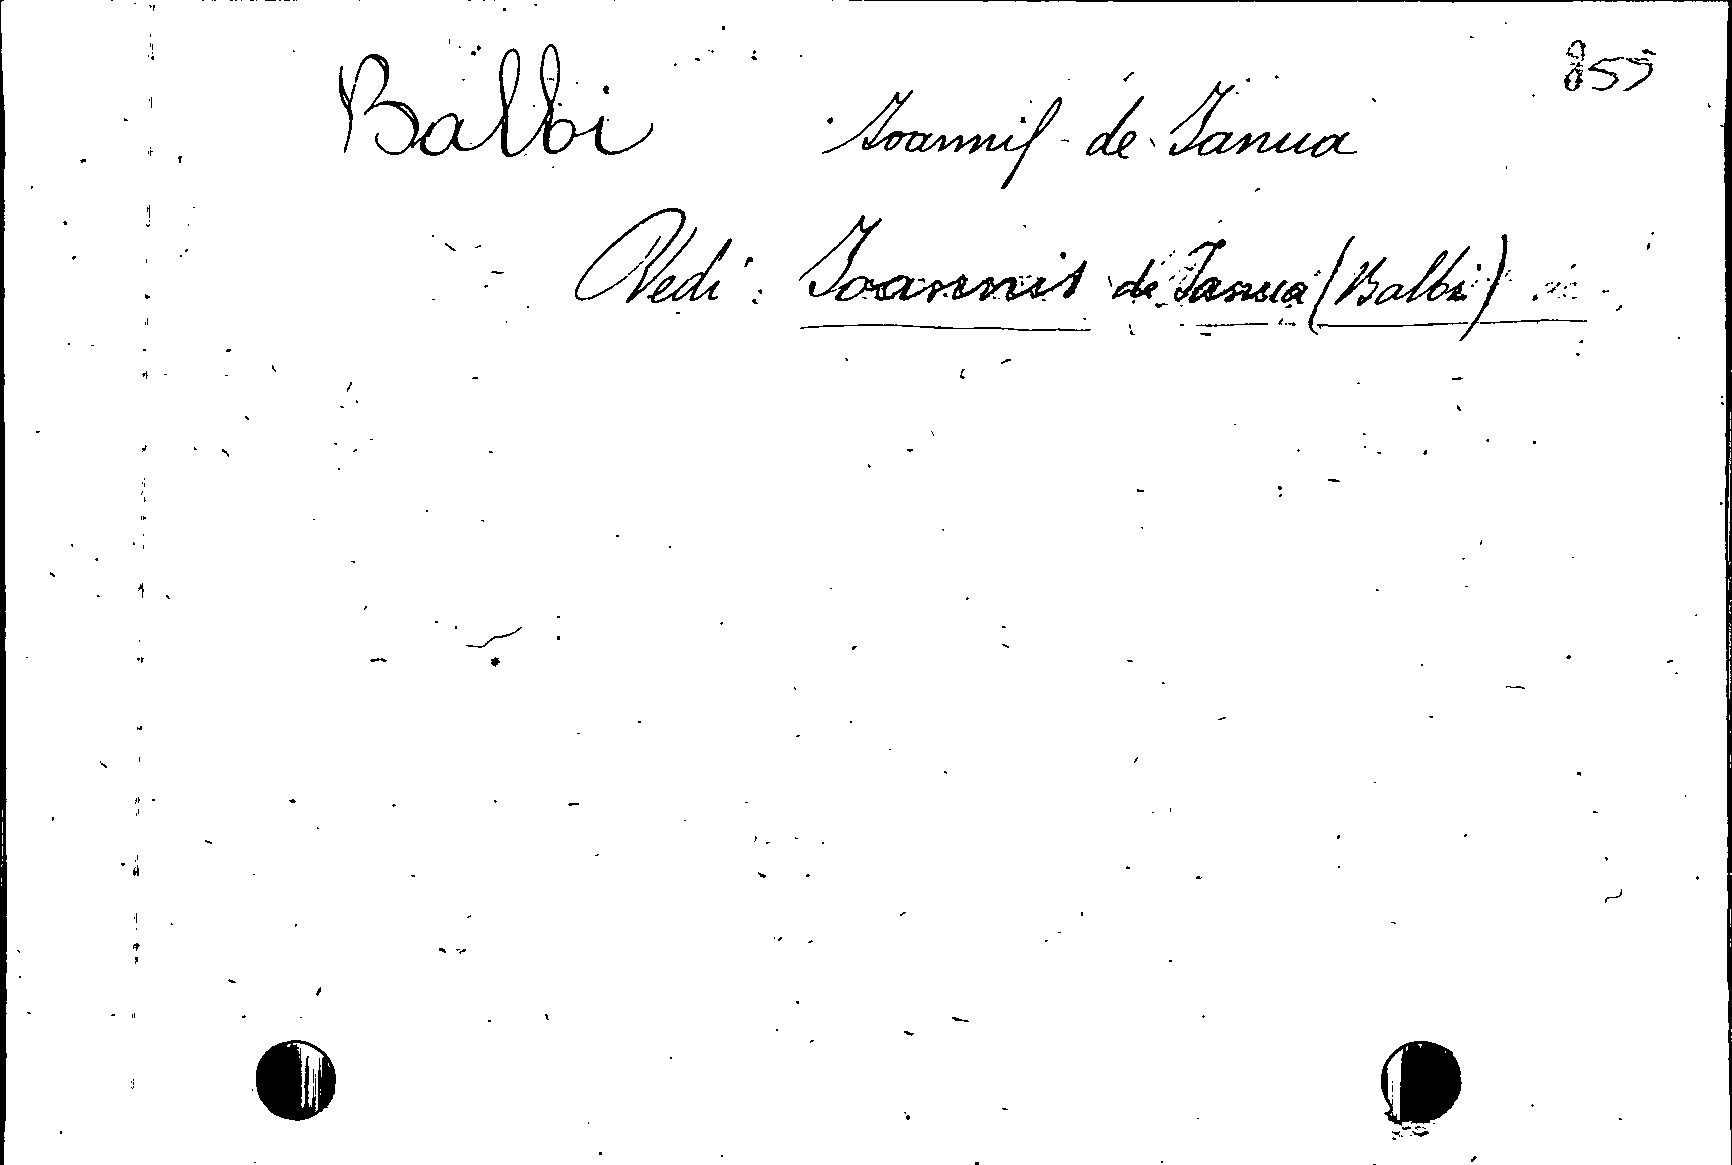 855
Balbi Joannis de Janua
Vedi: Joannis de Janua (Balbi)